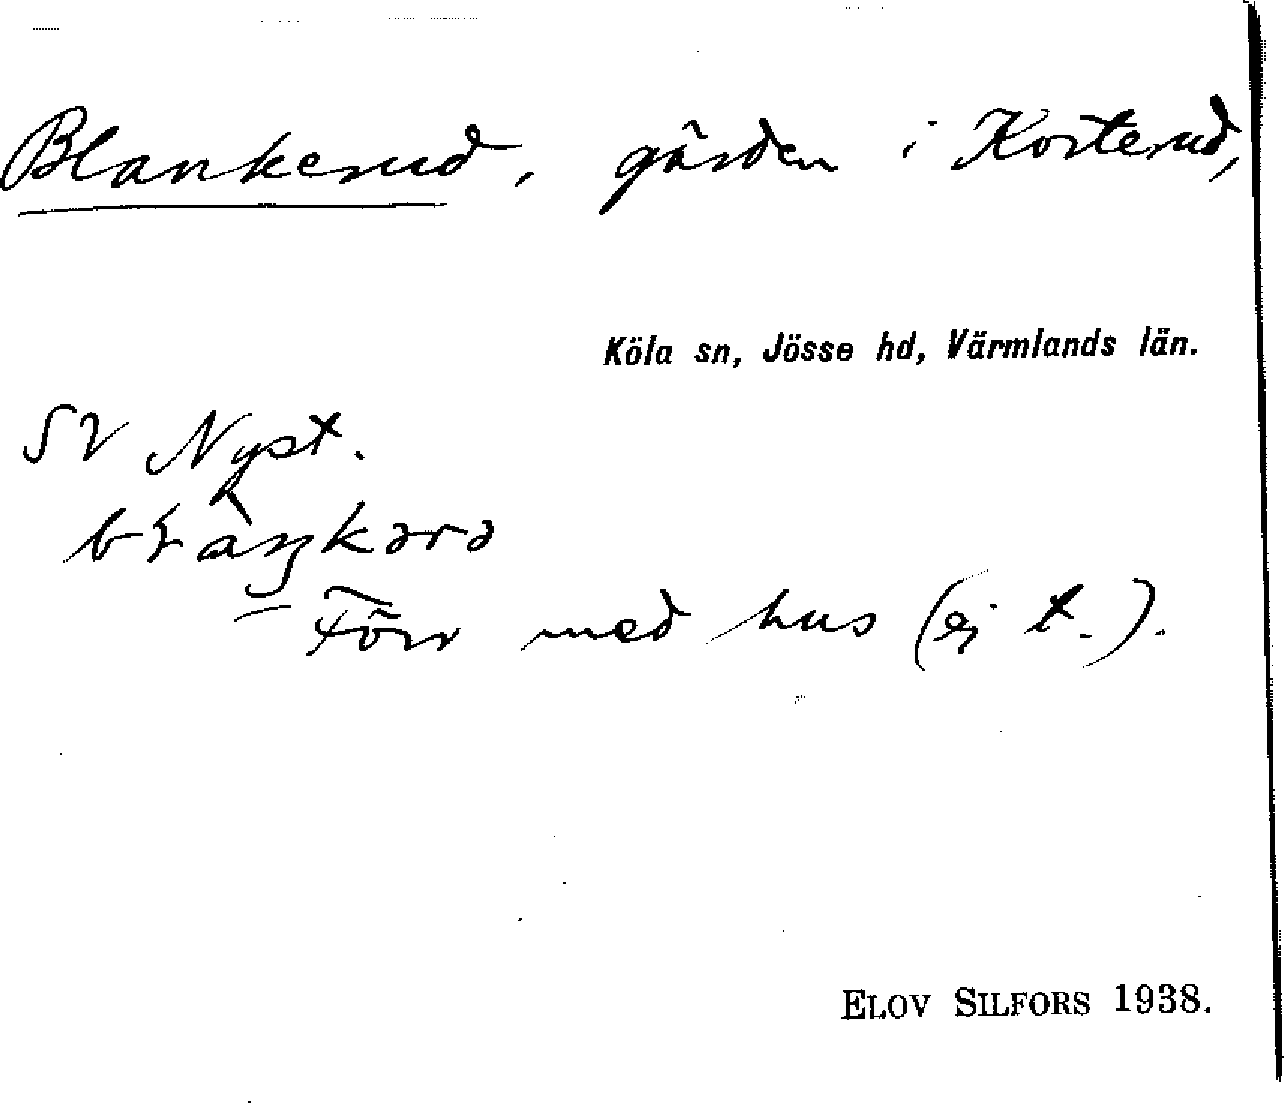 Blankerud, gärden i Korterud,
Köla sn, Jösse hd, Värmlands län.
SV Nyst.
Förr med hus (ej t.).
ELOV SILFORS 1938.